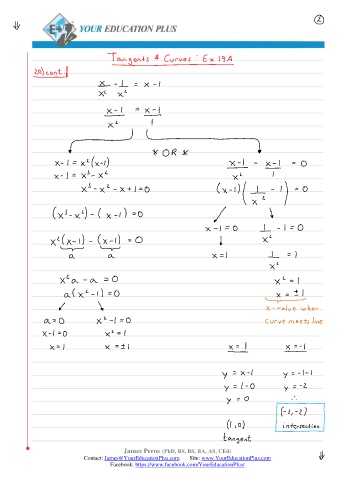 ②
E+ YOUR EDUCATION PLUS
Tangents & Curves : Ex 19A
20) cont
x/x² - 1/x² = x - 1
(x-1)/x² = (x-1)/1
* OR *
x-1 = x²(x-1)
x-1 = x³-x²
x³-x²-x+1=0
(x³-x²)-(x-1)=0
x²(x-1)-(x-1)=0
a a
x²a - a = 0
a(x²-1)=0
a=0 x²-1=0
x-1=0 x²=1
x=1 x=±1
(x-1)/x² - (x-1)/1 = 0
(x-1)(1/x² - 1) = 0
x-1=0 1/x² - 1 = 0
x=1 1/x² = 1
x²=1
x=±1
x-value when
curve meets line
x=1 x=-1
y = x-1 y=-1-1
y = 1-0 y=-2
y = 0 ∴
(-1,-2)
(1,0) intersection
tangent
James Peros (PhD, BS, BS, BA, AS, CEd)
Contact: James@YourEducationPlus.com Site: www.YourEducationPlus.com
Facebook: https://www.facebook.com/YourEducationPlus/